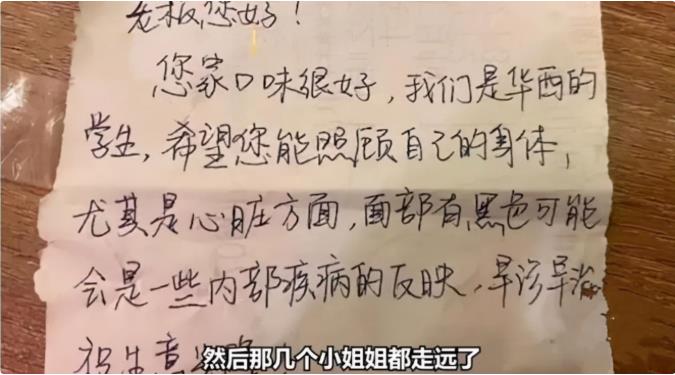 老板您好!
您家口味很好,我们是华西的
学生,希望您能照顾自己的身体,
尤其是心脏方面,面部有黑色可能
会是一些内部疾病的反映,早诊早治
祝生意
然后那几个小姐姐都走远了